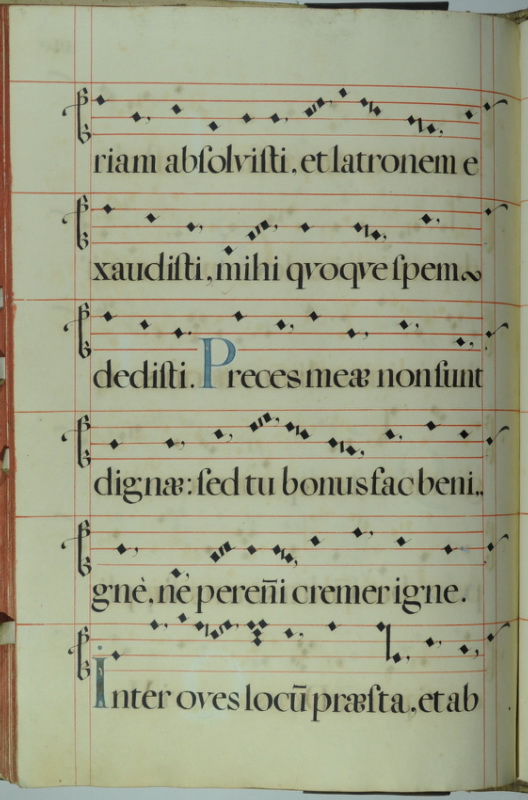 riam abſolviſti, et latronem e
xaudiſti, mihi qvoqve ſpem~
dediſti. Preces meæ non ſunt
dignæ: ſed tu bonus fac beni,,
gnè, nè pereñi cremer igne.
Inter oves locū præſta, et ab